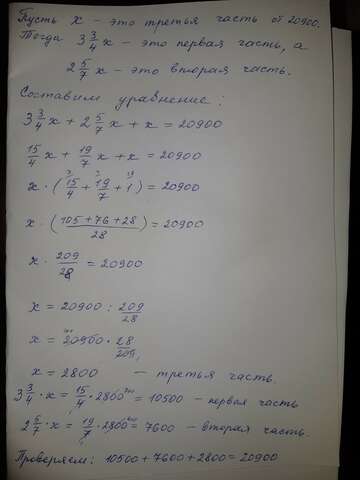 Пусть x - это третья часть от 20900.
Тогда 3 3/4 x - это первая часть, а
2 5/7 x - это вторая часть.
Составим уравнение:
3 3/4 x + 2 5/7 x + x = 20900
15/4 x + 19/7 x + x = 20900
x · (15/4 + 19/7 + 1) = 20900
x · ((105+76+28)/28) = 20900
x · 209/28 = 20900
x = 20900 : 209/28
x = 20900 · 28/209
x = 2800 - третья часть.
3 3/4 · x = 15/4 · 2800 = 10500 - первая часть
2 5/7 · x = 19/7 · 2800 = 7600 - вторая часть.
Проверяем: 10500 + 7600 + 2800 = 20900